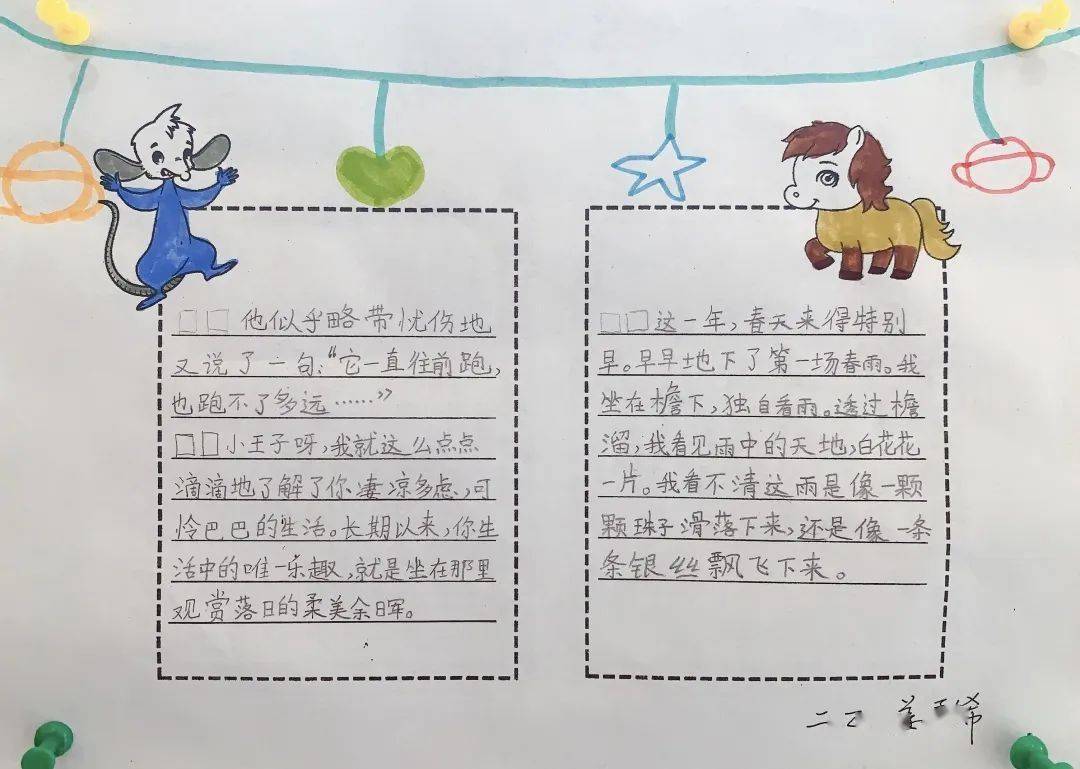 □□他似乎略带忧伤地
又说了一句：“它一直往前跑，
也跑不了多远……”
□□小王子呀，我就这么点点
滴滴地了解了你凄凉多虑，可
怜巴巴的生活。长期以来，你生
活中的唯一乐趣，就是坐在那里
观赏落日的柔美余晖。
□□这一年，春天来得特别
早。早早地下了第一场春雨。我
坐在檐下，独自看雨。透过檐
溜，我看见雨中的天地，白花花
一片。我看不清这雨是像一颗
颗珠子滑落下来，还是像一条
条银丝飘飞下来。